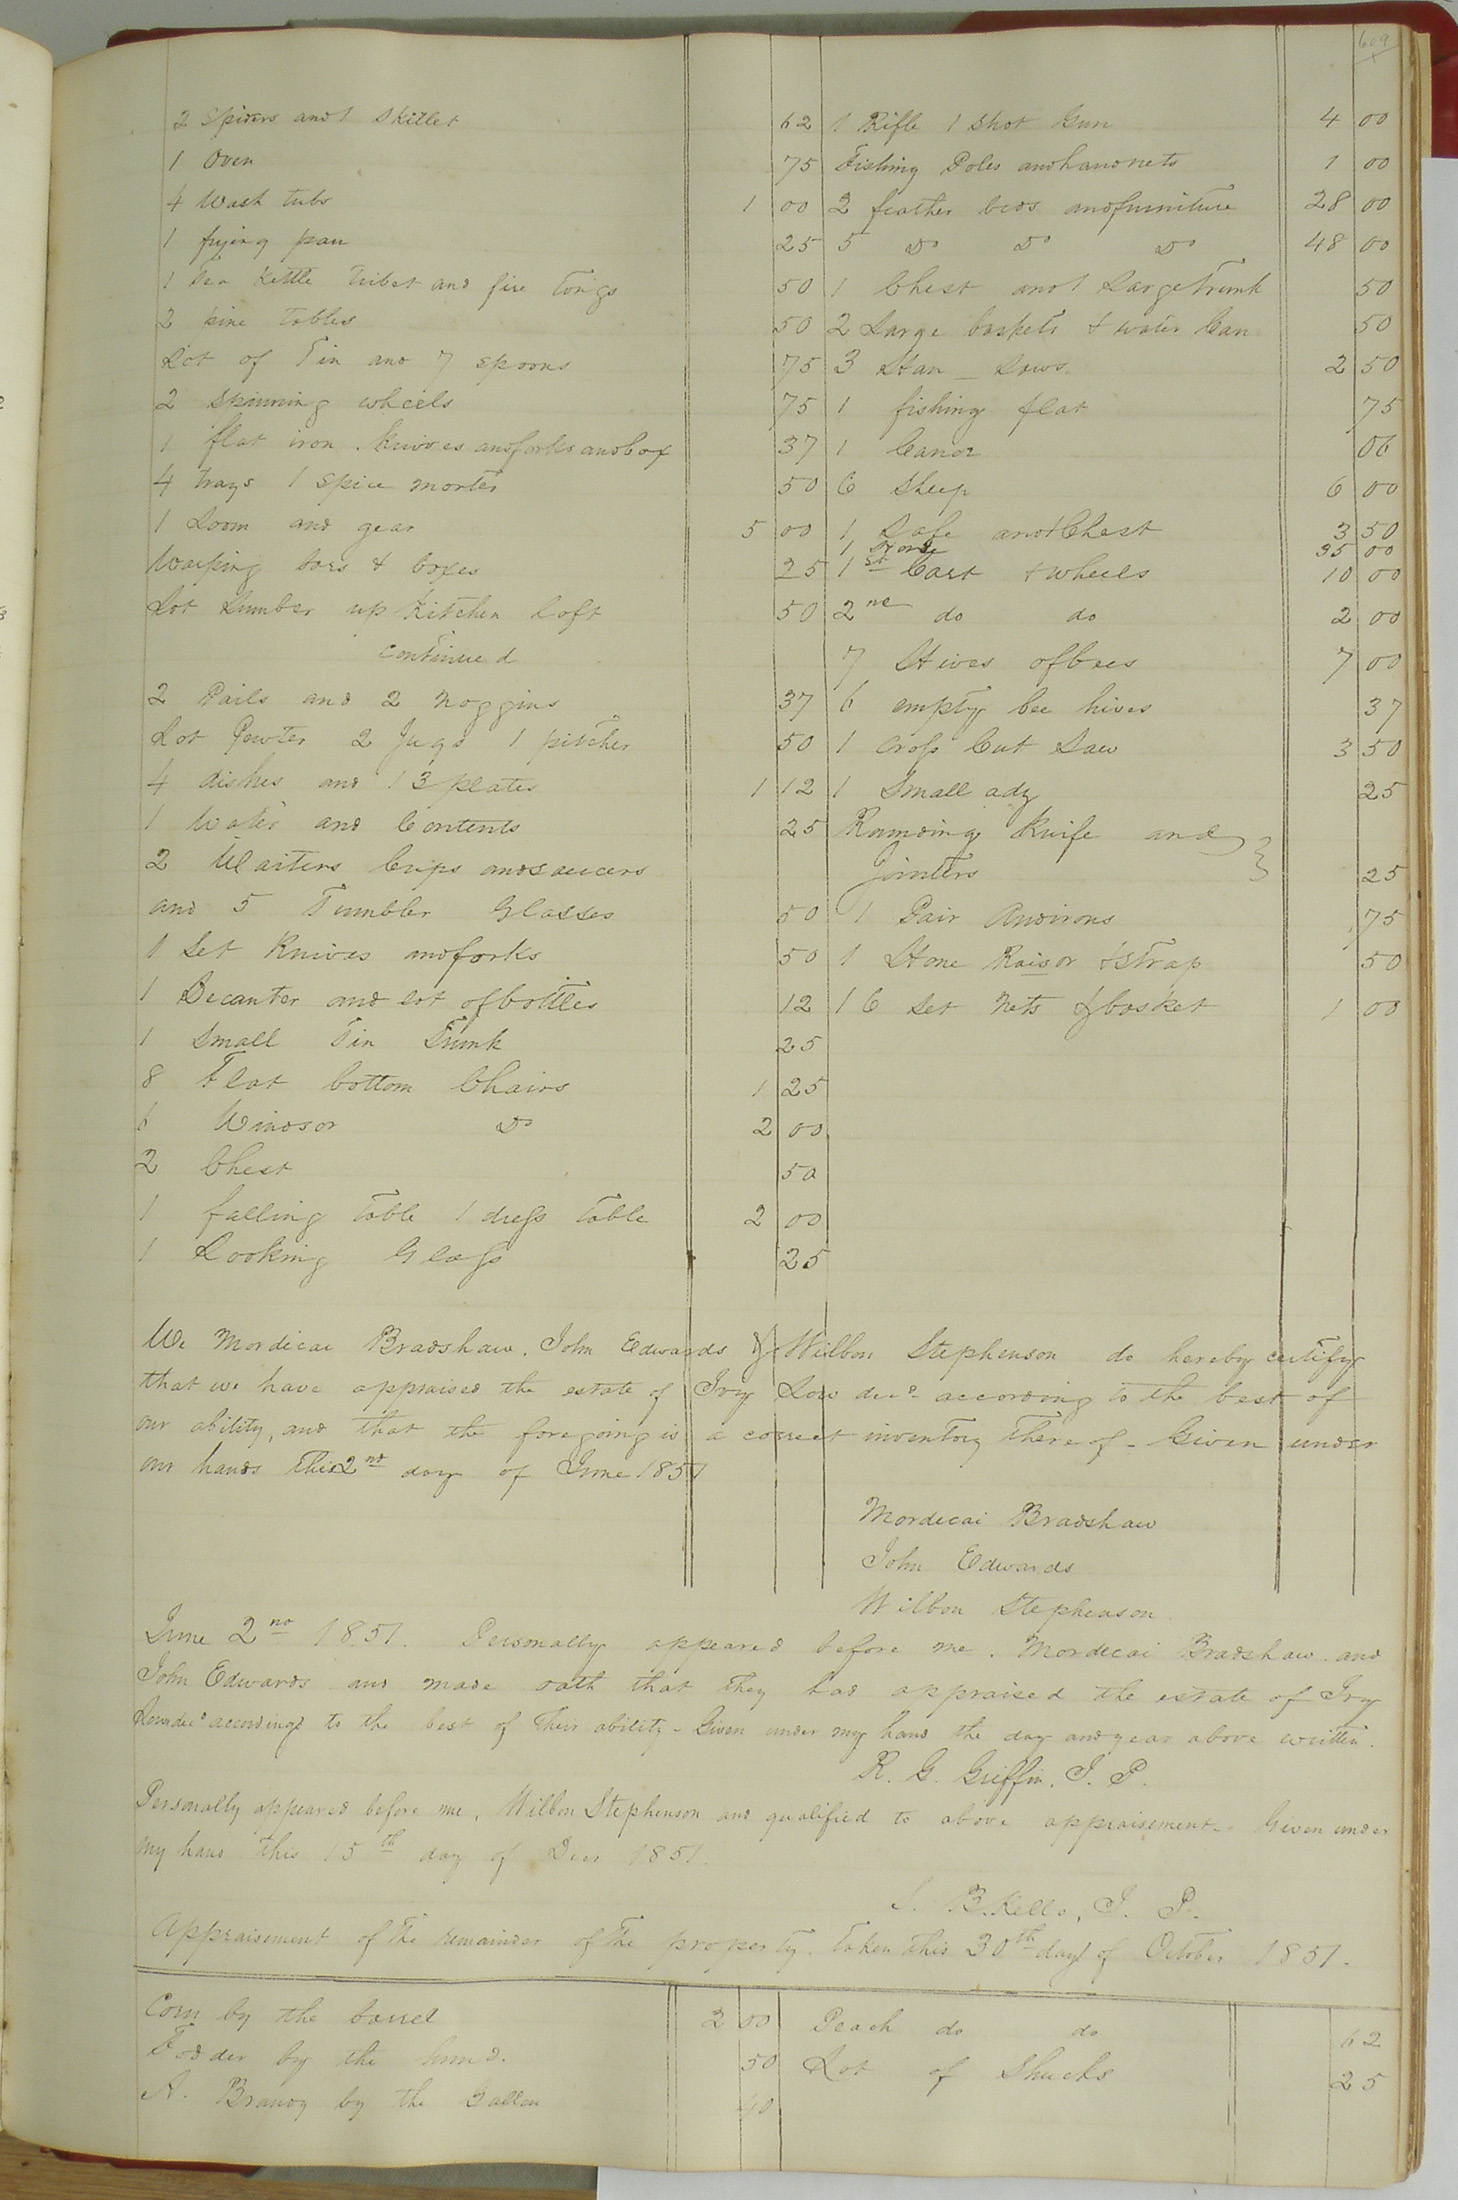 609
2 Spiders and 1 Skillet 62
1 Oven 75
4 Wash tubs 1 00
1 frying pan 25
1 Tea Kettle Tribet and fire Tongs 50
2 pine tables 50
Lot of Tin and 7 spoons 75
2 spinning wheels 75
1 flat iron . knives and forks and box 37
4 trays 1 spice morter 50
1 Loom and gear 5 00
Warping bars & boxes 25
Lot Lumber up Kitchen loft 50
continued
2 Pails and 2 noggins 37
Lot Pewter 2 Jugs 1 pitcher 50
4 dishes and 13 plates 1 12
1 Waiter and Contents 25
2 Waiters Cups and saucers
and 5 Tumbler Glasses 50
1 Set Knives and forks 50
1 Decanter and lot of bottles 12
1 Small Tin Trunk 25
8 Flat bottom Chairs 1 25
6 Windsor Do 2 00
2 Chest 50
1 falling table 1 dress table 2 00
1 Looking Glass 25
1 Rifle 1 Shot Gun 4 00
Fishing Poles and hand nets 1 00
2 feather beds and furniture 28 00
5 Do Do Do 48 00
1 Chest and 1 Large Trunk 50
2 Large baskets & water Can 50
3 Stan Sows 2 50
1 fishing flat 75
1 Canoe 06
6 Sheep 6 00
1 Safe and 1 Chest 3 50
1 Horse 35 00
1st Cart & wheels 10 00
2nd do do 2 00
7 Hives of bees 7 00
6 empty bee hives 37
1 Cross Cut Saw 3 50
1 Small adz 25
Rounding Knife and
Jointers 25
1 Pair Andirons 75
1 Hone Raisor & strap 50
1 6 Set Nets & basket 1 00
We Mordicai Bradshaw. John Edwards & Wilbon Stephenson do hereby certify
that we have appraised the estate of Ivy Low decd according to the best of
our ability, and that the foregoing is a correct inventory thereof - Given under
our hands this 2nd day of June 1851
Mordecai Bradshaw
John Edwards
Wilbon Stephenson
June 2nd 1851. Personally appeared before me. Mordecai Bradshaw and
John Edwards and made oath that they had appraised the estate of Ivy
Low decd according to the best of their ability - Given under my hand the day and year above written.
R. G. Griffin. J. P.
Personally appeared before me, Wilbon Stephenson and qualified to above appraisement - Given under
my hand this 15th day of Decr 1851.
S. B. Kello, J. P.
Appraisement of the remainder of the property. taken this 30th day of October 1851.
Corn by the barrel 2 00
Fodder by the hund. 50
A. Brandy by the Gallon 40
Peach do do 62
Lot of Shucks 25